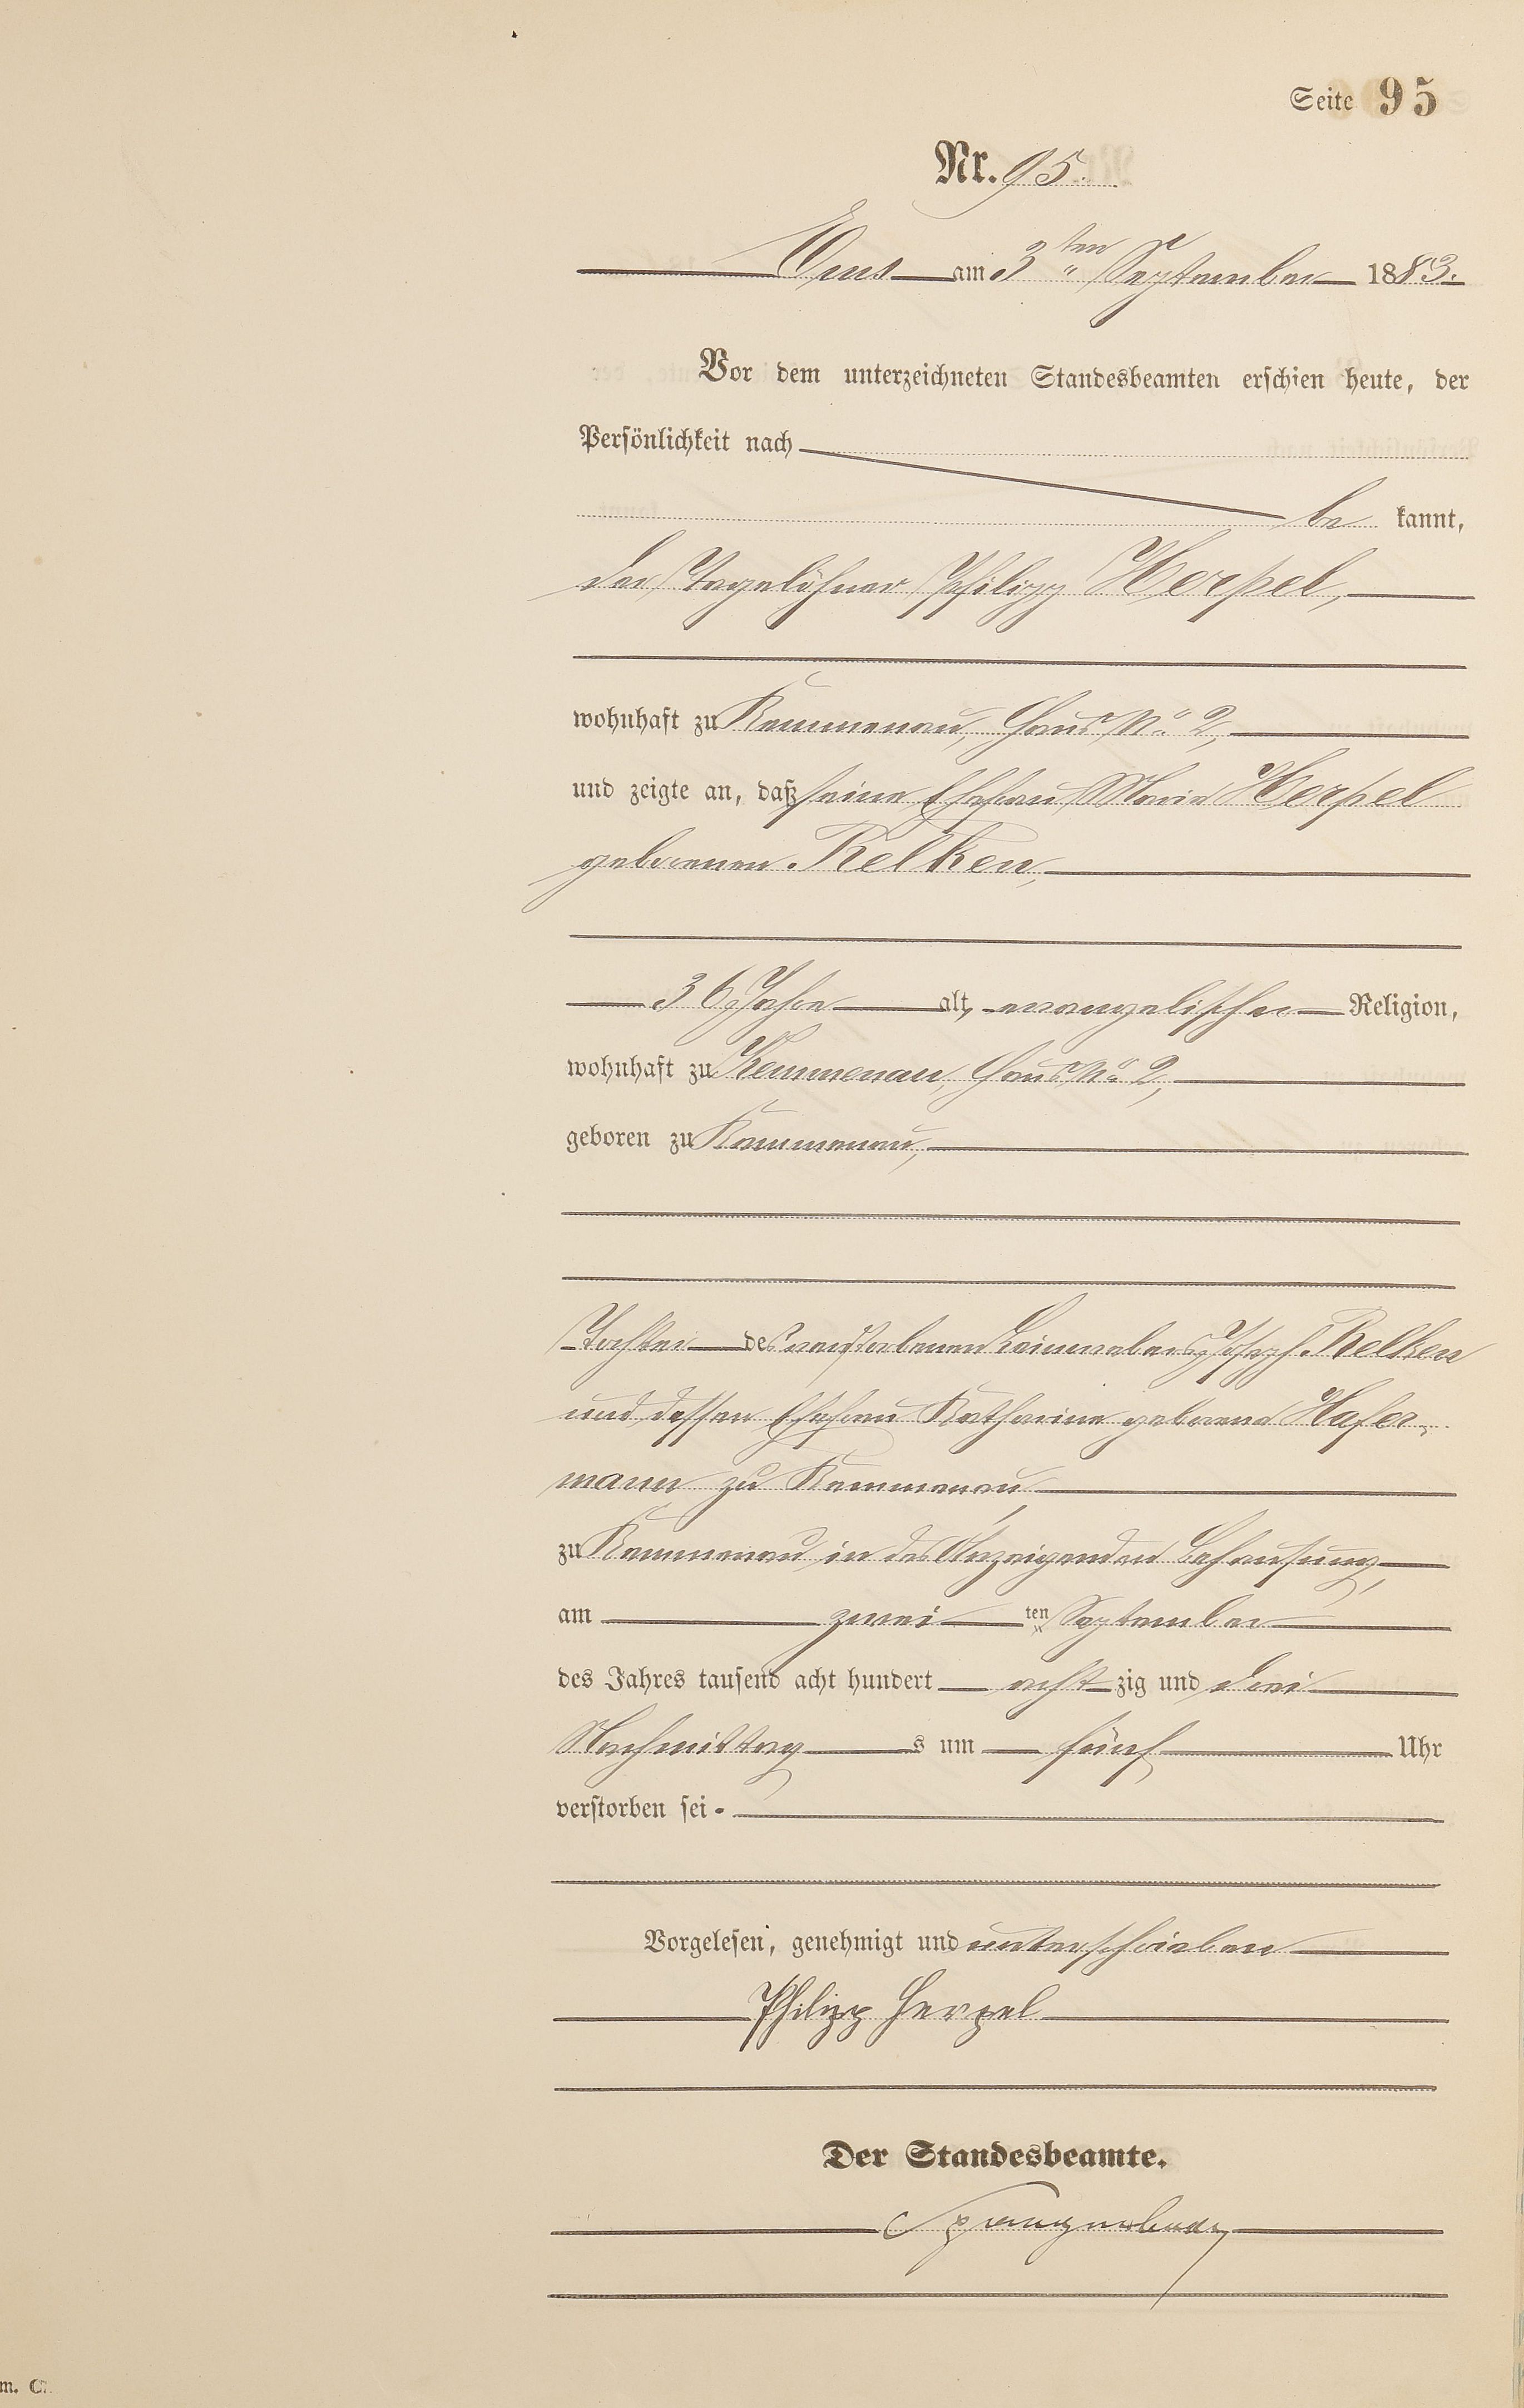 Seite 95
Nr. 95.
Ems am 3ten September 1883.
Vor dem unterzeichneten Standesbeamten erschien heute, der
Persönlichkeit nach
be kannt,
der Tagelöhner Philipp Herpel,
wohnhaft zu Kemmenau, Haus No. 2,
und zeigte an, daß seine Ehefrau Marie Herpel
geborenen Relken,
36 Jahre alt, evangelischer Religion,
wohnhaft zu Kemmenau, Haus No. 2,
geboren zu Kemmenau,
Tochter des verstorbenen Leinwebers Joseph Relken
und dessen Ehefrau Katharine geborene Hafer-
mann zu Kemmenau,
zu Kemmenau in des Anzeigenden Behausung,
am zwei ten September
des Jahres tausend acht hundert acht zig und drei
Nachmittag s um fünf Uhr
verstorben sei.
Vorgelesen, genehmigt und unterschrieben
Philipp Herpel
Der Standesbeamte.
m.